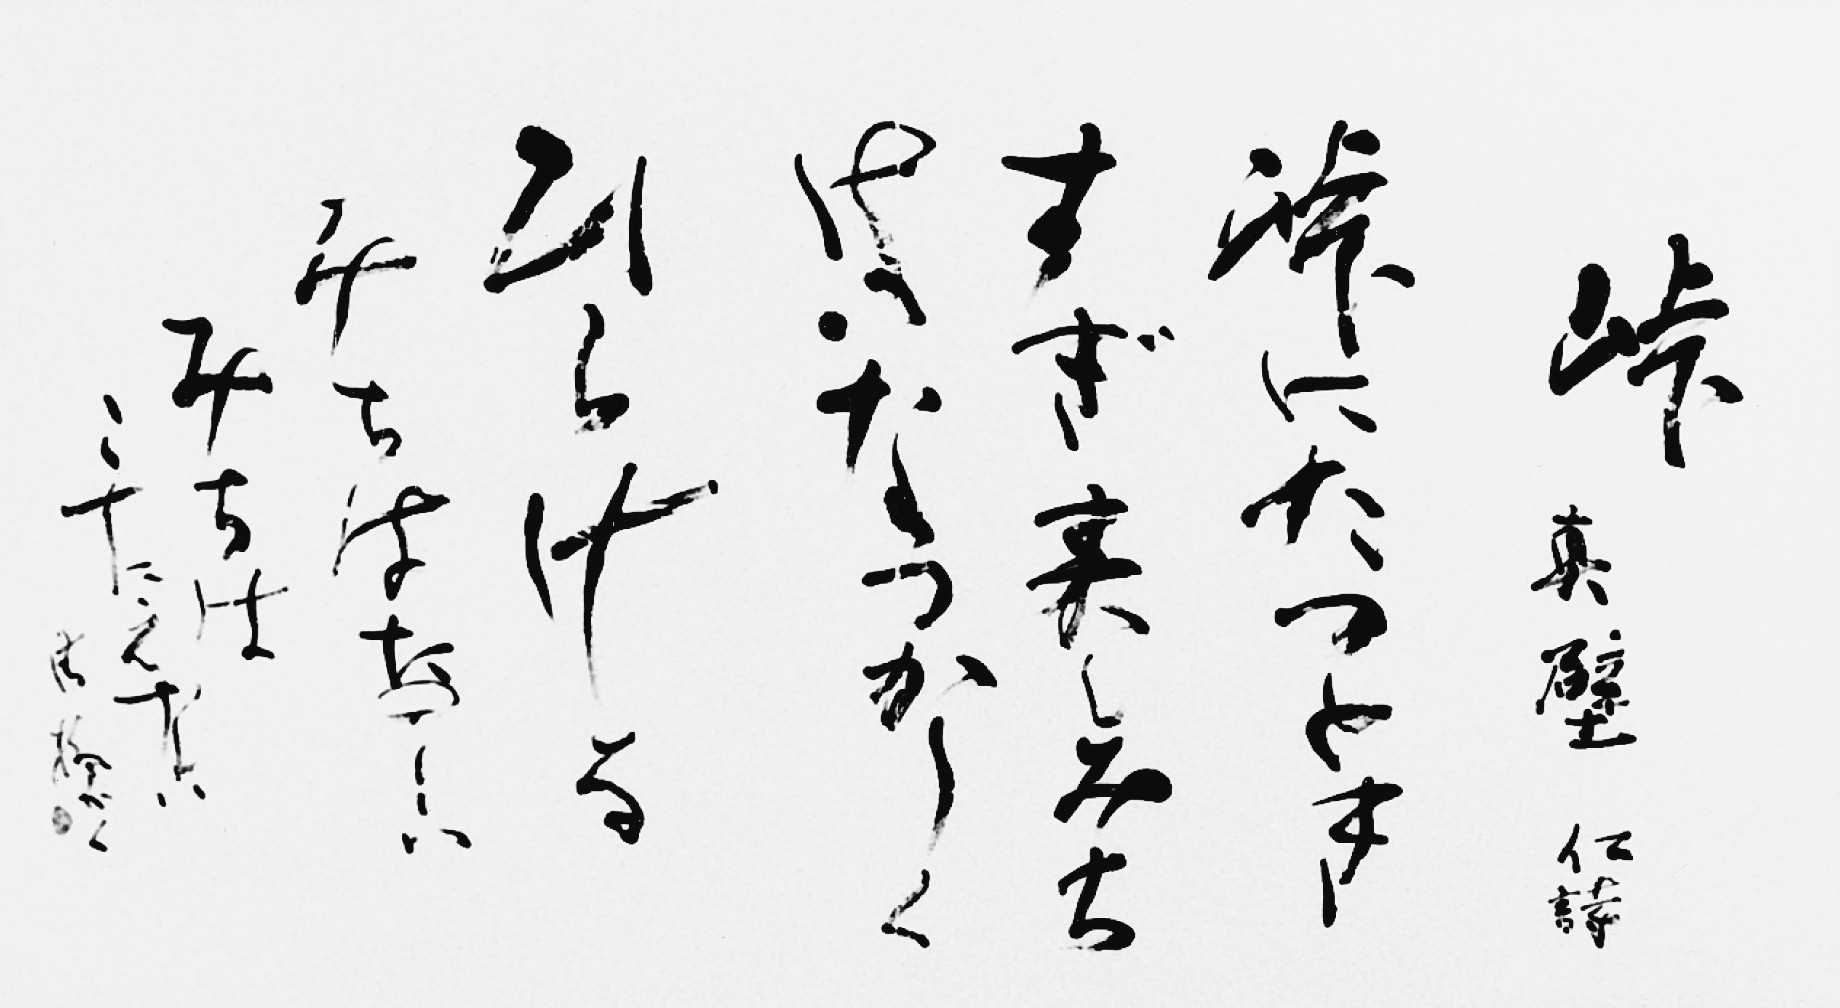 峠
真壁 仁詩
峠にたつとき
すぎ来しみち
はなつかしく
ひらける
みちはたのしい
みちは
こたえない